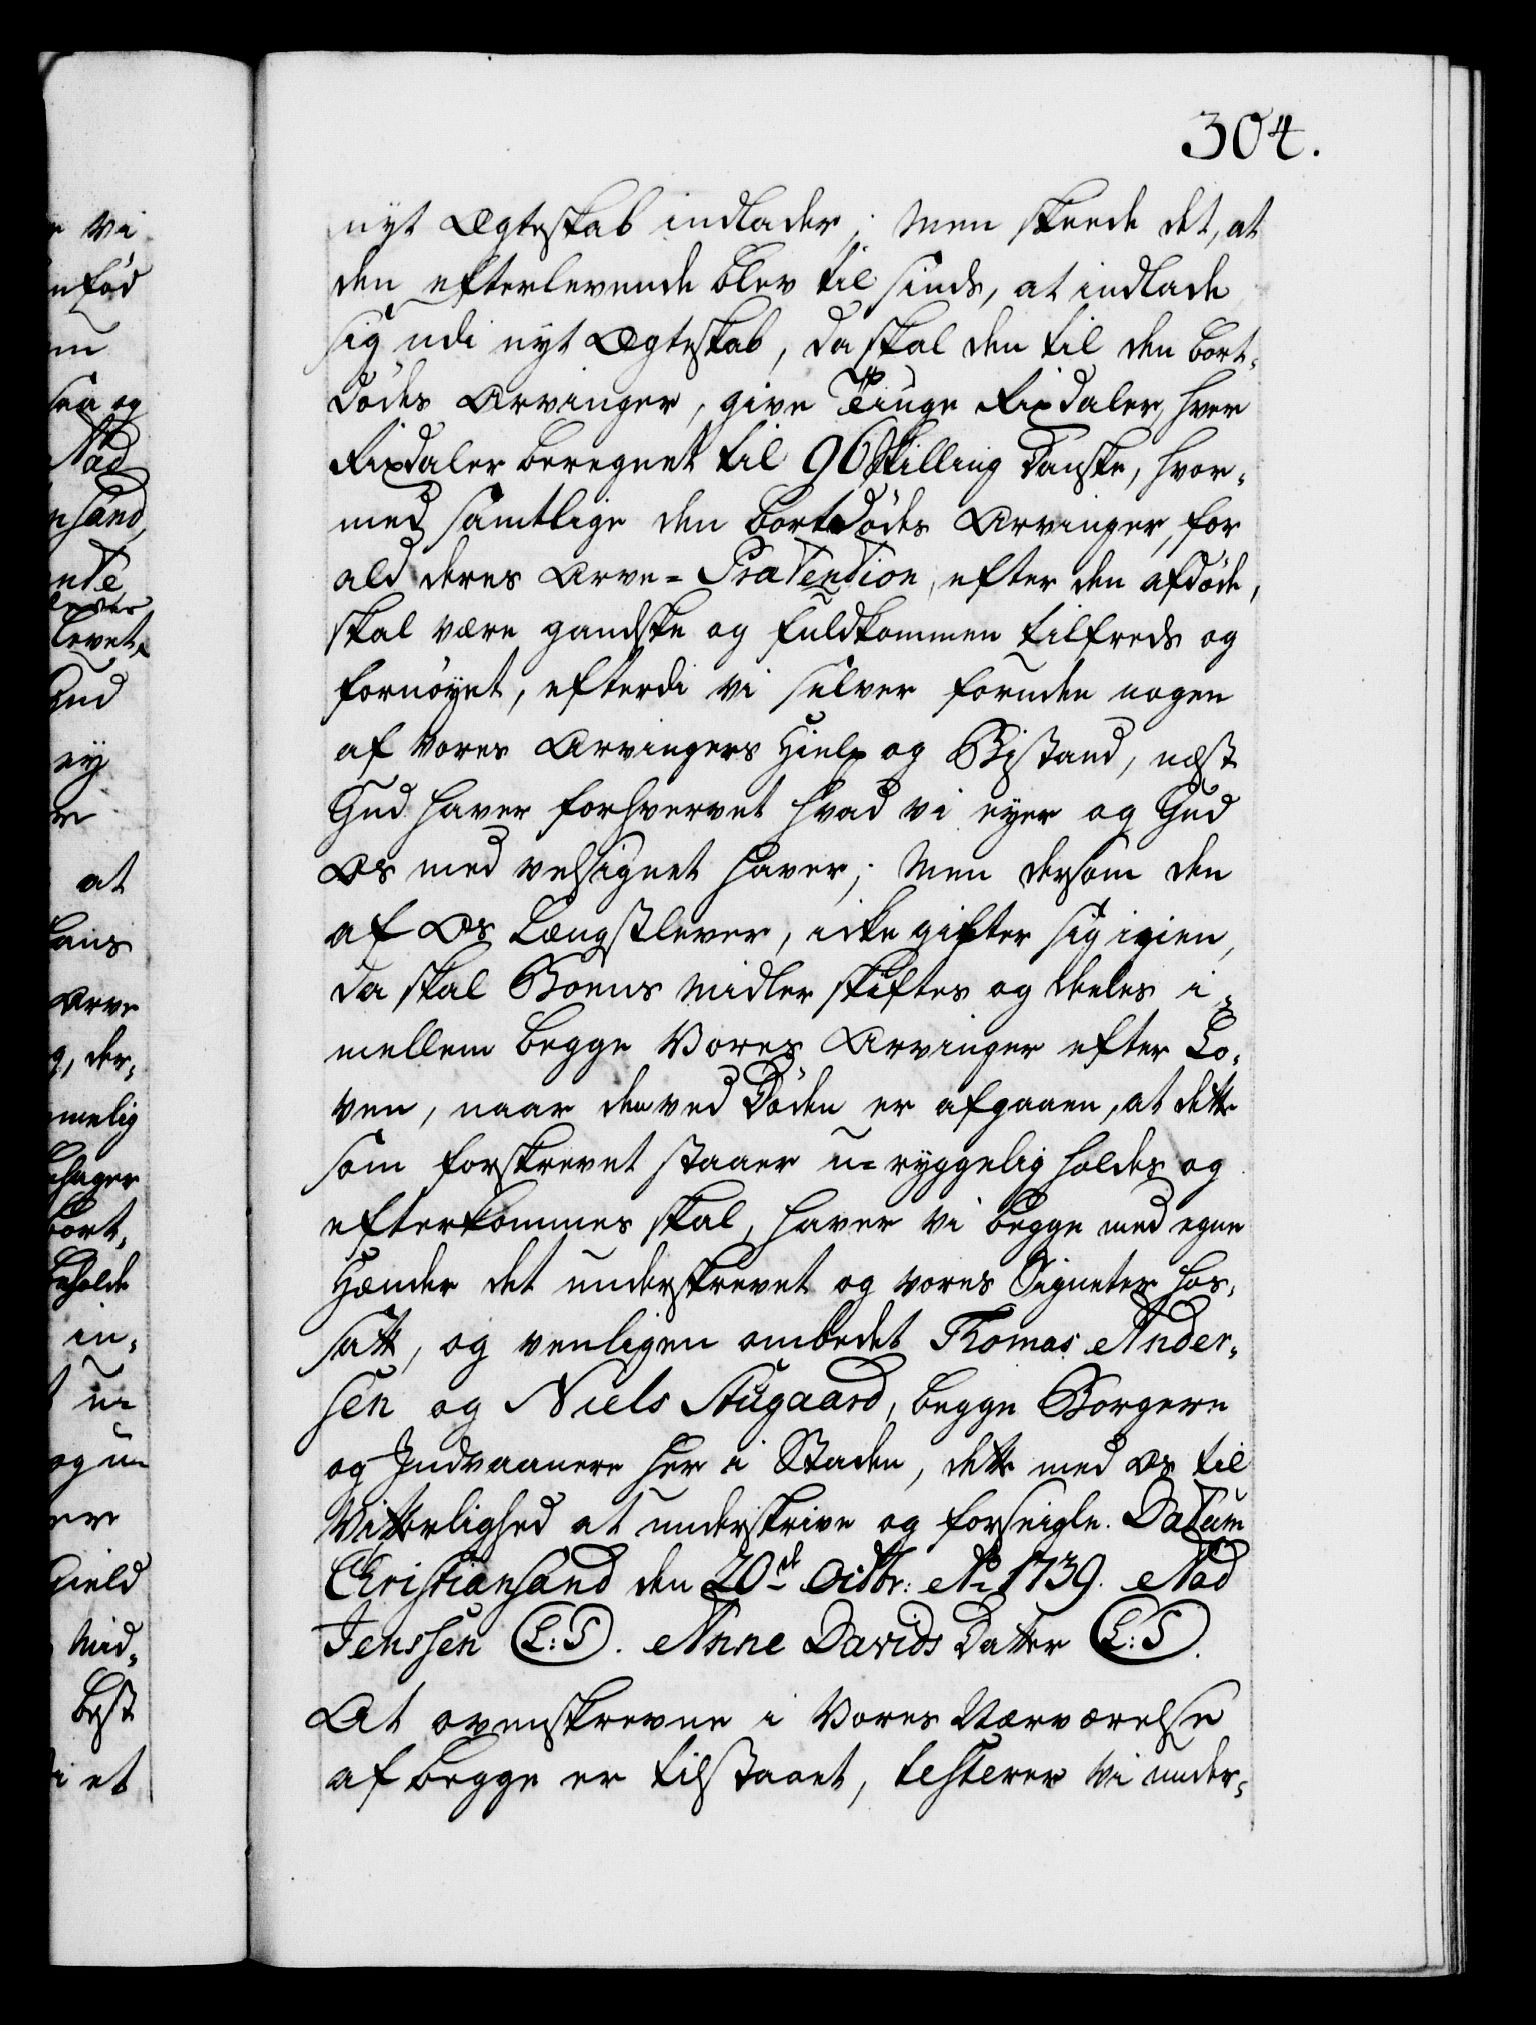 304.
nyt Ægteskab indlader; Men skeede det, at
den efterlevende blev til sinds, at indlade
sig udi nyt Ægteskab, da skal den til den bort-
dödes Arvinger, give Tiuge Rixdaler, hver
Rixdaler beregnet til 96 Skilling Danske, hvor-
med samtlige den bortdödes Arvinger, for
ald deres Arve-Prætension, efter den afdöde,
skal være gandske og fuldkommen tilfreds og
fornöyet, efterdi vi selver foruden nogen
af Vores Arvingers Hielp og Bistand, næst
Gud haver forhvervet hvad vi eyer og Gud
Os med velsignet haver; Men dersom den
af Os Længstlever, icke gifter sig igien,
da skal Boens Midler skiftes og deeles i-
mellem begge Vores Arvinger efter Lo-
ven, naar den ved Döden er afgaaen, at dette
som forskrevet staaer u-ryggelig holdes og
efterkommes skal, haver vi begge med egne
Hænder det underskrevet og vores Signeter hos-
satt, og venligen ombedet Thomas Ander-
sen og Niels Augaard, begge Borgere
og Indvaanere her i Staden, dette med Os til
Vitterlighed at underskrive og forseigle. Datum
Christiansand den 20de Octbr: Ao 1739. Nad
Jenssen (L:S). Anne Davids Datter (L:S).
At ovenskrevne i Vores Nærværelse
af begge er tilstaaet, testerer vi under-